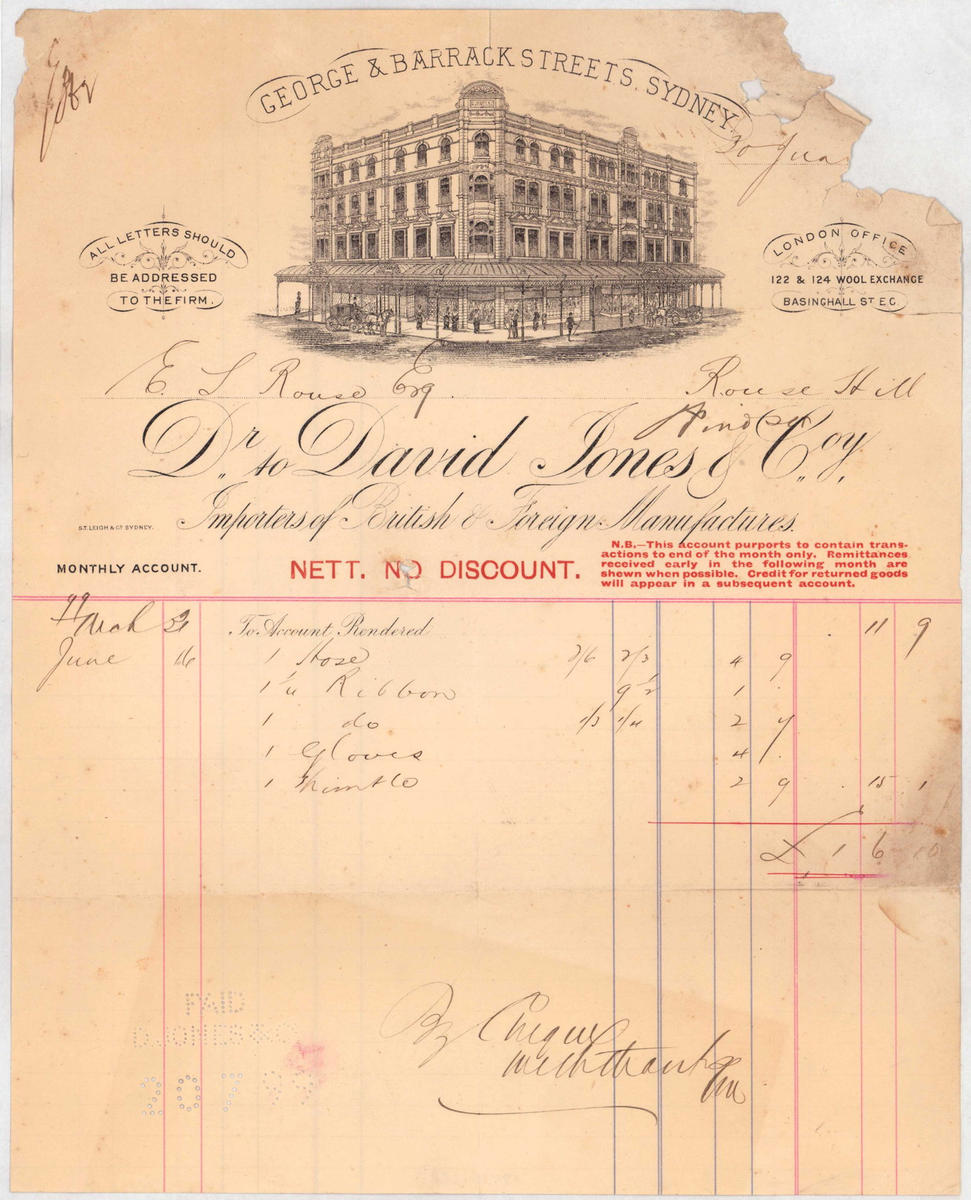 GEORGE & BARRACK STREETS. SYDNEY.
30 June
ALL LETTERS SHOULD
BE ADDRESSED
TO THE FIRM.
LONDON OFFICE
122 & 124 WOOL EXCHANGE
BASINGHALL ST E.C.
E. S Rouse Esq. Rouse Hill
Windsor
Dr. to David Jones & Coy.
Importers of British & Foreign Manufactures.
S.T. LEIGH & CO SYDNEY.
MONTHLY ACCOUNT.
NETT. NO DISCOUNT.
N.B.—This account purports to contain trans-
actions to end of the month only. Remittances
received early in the following month are
shewn when possible. Credit for returned goods
will appear in a subsequent account.
99
March 31 To Account Rendered . 11 9
June 16 1 Hose 2/6 2/3 4 9
Ribbon 9½ 1 .
1 do 1/3 1/4 2 7
1 Gloves 4 .
1 Thimble 2 9 . 15 1
£ 1 6 10
By Cheque
with thanks
PAID
D. JONES & CO
20 7 99